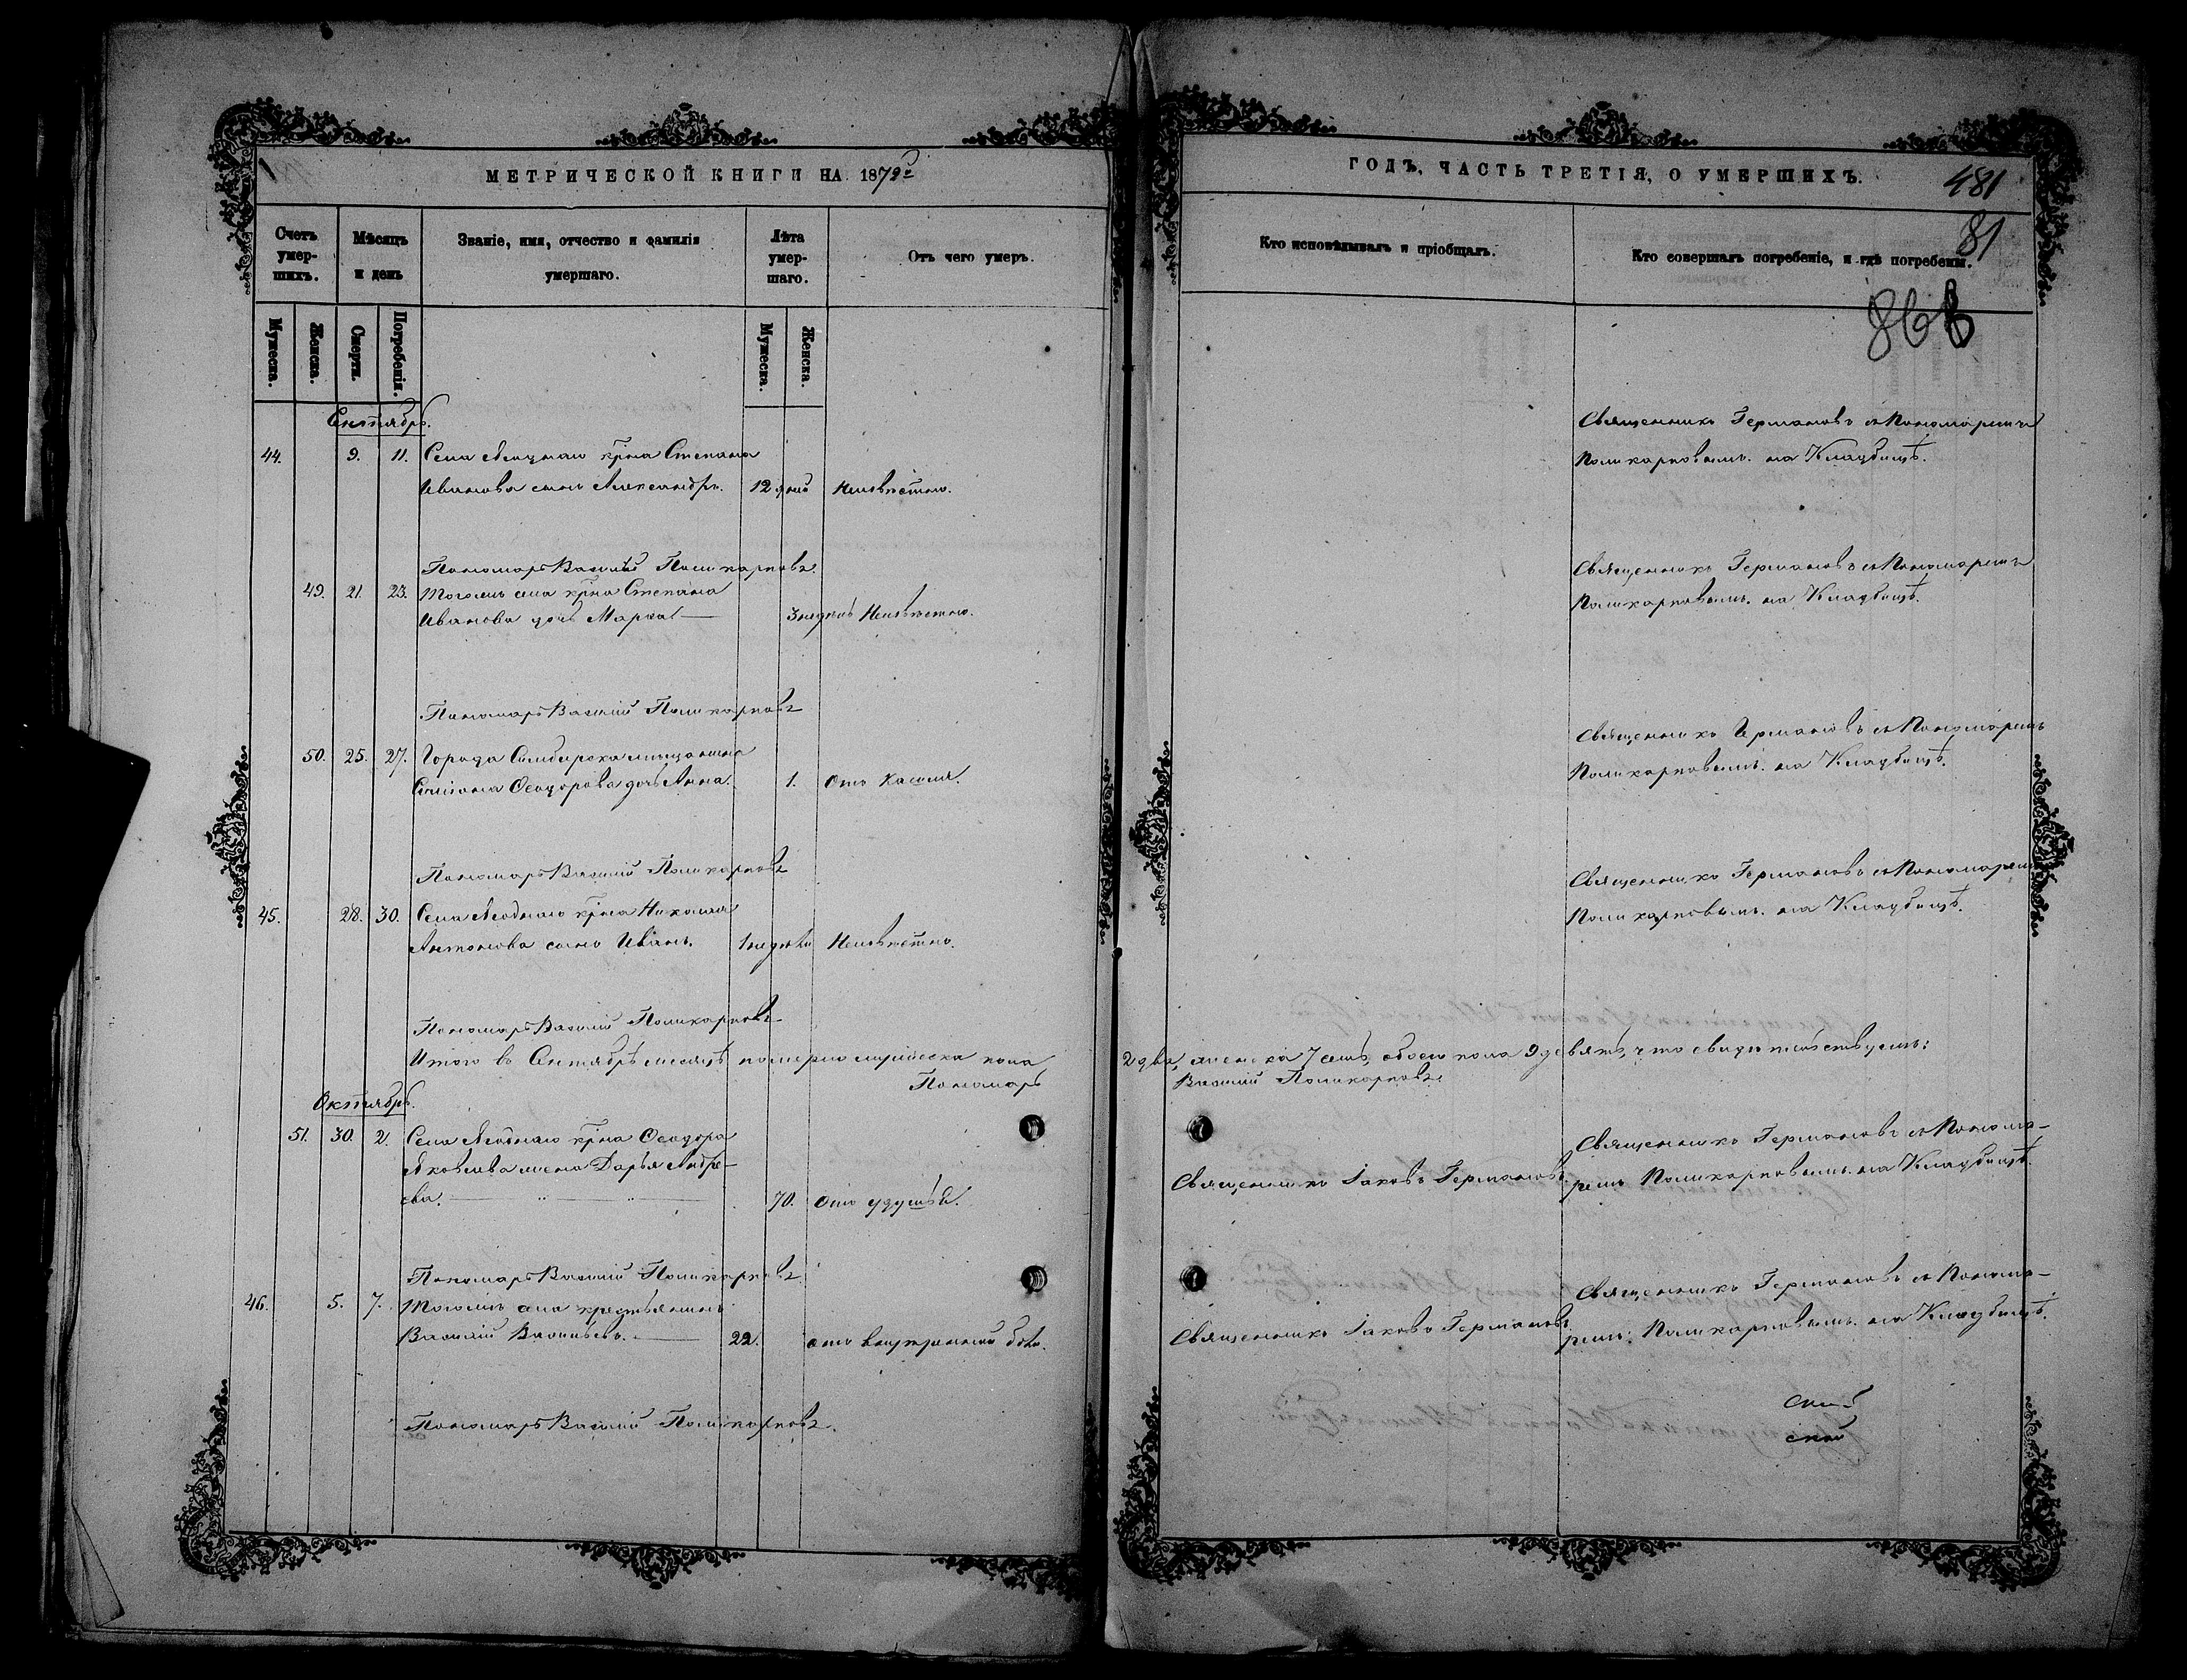 МЕТРИЧЕСКОЙ КНИГИ НА 1872й
Счетъ умер-шихъ.
Мѣсяцъ и день
Званіе, имя, отчество и фамилія умершаго.
Лѣта умер-шаго.
Отъ чего умеръ.
Мужеска.
Женска.
Смерти.
Погребенія.
Мужеска.
Женска.
Сентябрь.
44. 9. 11. Села крна Степана
Иванова сынъ Александръ. 12 дней Неизвѣстно.
Пономарь Василій Поликарповъ.
49. 21. 23. Тогожъ села крна Степана
Иванова дочь Марѳа 3 недѣль Неизвѣстно.
Пономарь Василій Поликарповъ
50. 25. 27. Города Симбирска мѣщанина
Симіона Ѳеодорова дочь Анна. 1. Отъ кашля.
Пономарь Василій Поликарповъ
45. 28. 30. Села Ягоднаго крна Николая
Антонова сынъ Иванъ. 1 недѣли Неизвѣстно.
Пономарь Василій Поликарповъ
Итого въ Сентябрѣ мѣсяцѣ померло мужеска пола
Пономарь
Октябрь.
51. 30. 2. Села Ягоднаго крна Ѳеодора
Яковлева жена Дарья Андре-
ева. 70. отъ удушья.
Пономарь Василій Поликарповъ.
46. 5. 7. Тогожъ села крестьянинъ
Василій Васильевъ. 22. отъ внутренней боли.
Пономарь Василій Поликарповъ.
ГОДЪ, ЧАСТЬ ТРЕТІЯ, О УМЕРШИХЪ.
481
81
Кто исповѣдывалъ и пріобщалъ.
Кто совершалъ погребеніе, и гдѣ погребены.
Священникъ Германовъ съ Пономаремъ
Поликарповымъ. на Кладбищѣ.
Священникъ Германовъ съ Пономаремъ
Поликарповымъ. на Кладбищѣ.
Священникъ Германовъ съ Пономаремъ
Поликарповымъ. на Кладбищѣ.
Священникъ Германовъ съ Пономаремъ
Поликарповымъ. на Кладбищѣ.
2 два, женска 7 семь, обоего пола 9 девять, что свидѣтельствуемъ:
Василій Поликарповъ.
Священникъ Іаковъ Германовъ.
Священникъ Германовъ съ Понома-
ремъ Поликарповымъ. на Кладбищѣ.
Священникъ Іаковъ Германовъ.
Священникъ Германовъ съ Понома-
ремъ Поликарповымъ. на Кладбищѣ.